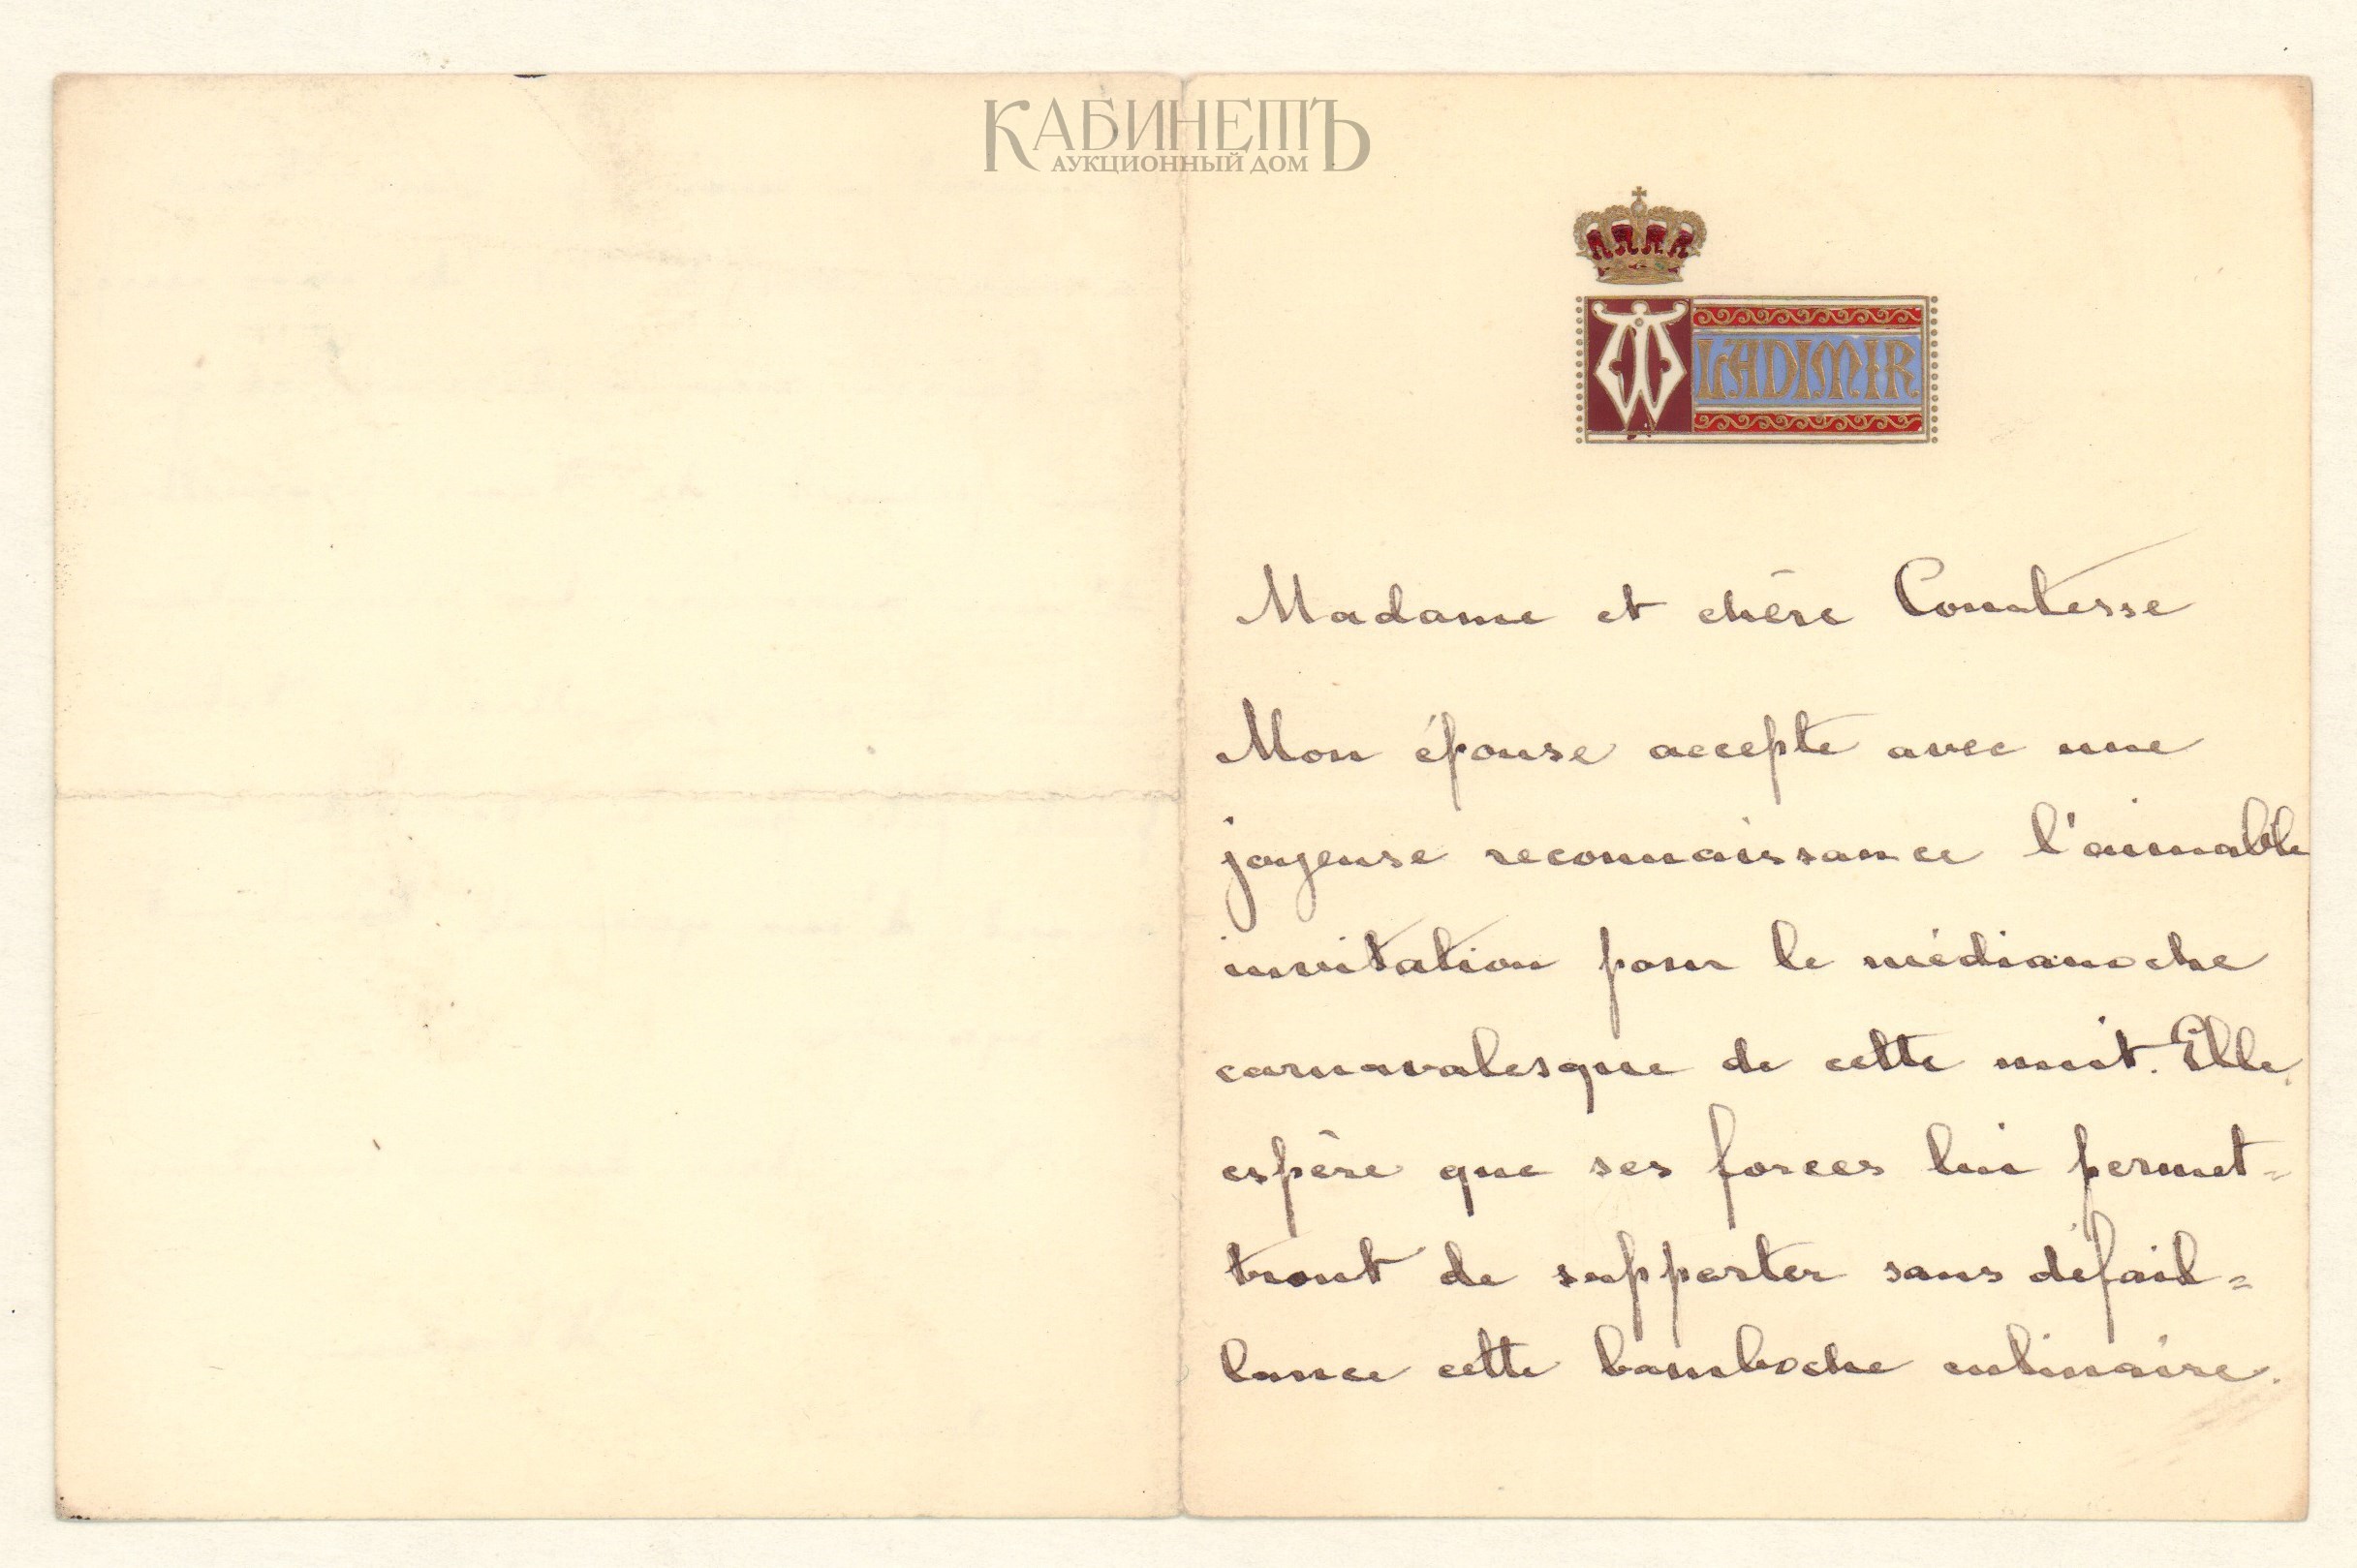 КАБИНЕТЪ
АУКЦИОННЫЙ ДОМ
WLADIMIR
Madame et chère Comtesse
Mon épouse accepte avec une
joyeuse reconnaissance l'aimable
invitation pour le médianoche
carnavalesque de cette nuit. Elle
espère que ses forces lui permet=
tront de supporter sans défail=
lance cette bamboche culinaire.